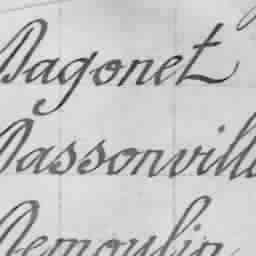 Dagonet
Dassonvill
Demoulin